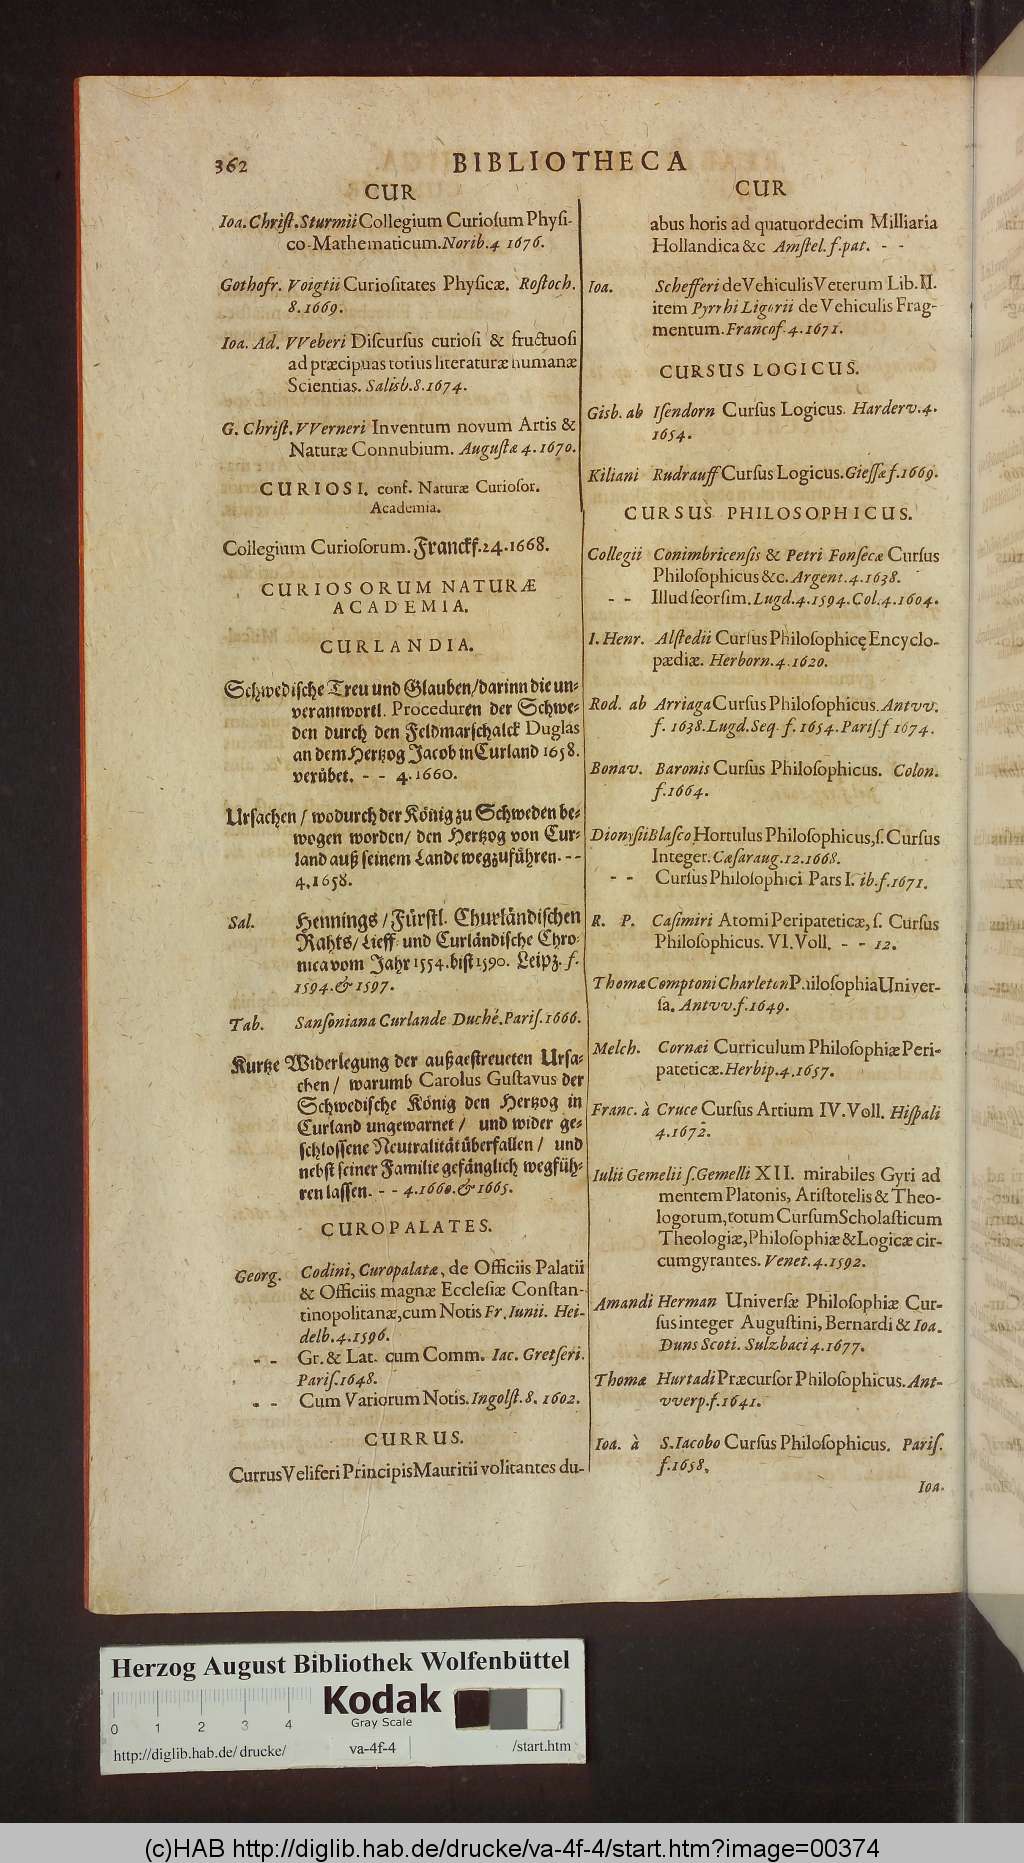 362
BIBLIOTHECA
CUR
Ioa. Chriſt. Sturmii Collegium Curioſum Phyſi-
co-Mathematicum. Norib. 4 1676.
Gothofr. Voigtii Curioſitates Phyſicæ. Roſtoch.
8. 1669.
Ioa. Ad. VVeberi Diſcurſus curioſi & fructuoſi
ad præcipuas totius literaturæ humanæ
Scientias. Salisb. 8. 1674.
G. Chriſt. VVerneri Inventum novum Artis &
Naturæ Connubium. Auguſtæ 4. 1670.
CURIOSI. conf. Naturæ Curioſor.
Academia.
Collegium Curioſorum. Franckf. 24. 1668.
CURIOSORUM NATURÆ
ACADEMIA.
CURLANDIA.
Schwediſche Treu und Glauben/ darinn die un-
verantwortl. Proceduren der Schwe-
den durch den Feldmarſchalck Duglas
an dem Hertzog Jacob in Curland 1658.
verübet. - - 4. 1660.
Urſachen / wodurch der König zu Schweden be-
wogen worden/ den Hertzog von Cur-
land auß ſeinem Lande wegzuführen. - -
4. 1658.
Sal. Hennings / Fürſtl. Churländiſchen
Rahts/ Lieff- und Curländiſche Chro-
nica vom Jahr 1554. biſt 1590. Leipz. f.
1594. & 1597.
Tab. Sanſoniana Curlande Duché. Pariſ. 1666.
Kurtze Widerlegung der außgeſtreueten Urſa-
chen / warumb Carolus Guſtavus der
Schwediſche König den Hertzog in
Curland ungewarnet / und wider ge-
ſchloſſene Neutralität überfallen / und
nebſt ſeiner Familie gefänglich wegfüh-
ren laſſen. - - 4. 1660. & 1665.
CUROPALATES.
Georg. Codini, Curopalatæ, de Officiis Palatii
& Officiis magnæ Eccleſiæ Conſtan-
tinopolitanæ, cum Notis Fr. Iunii. Hei-
delb. 4. 1596.
- - Gr. & Lat. cum Comm. Iac. Gretſeri.
Pariſ. 1648.
- - Cum Variorum Notis. Ingolſt. 8. 1602.
CURRUS.
Currus Veliferi Principis Mauritii volitantes du-
CUR
abus horis ad quatuordecim Milliaria
Hollandica &c Amſtel. f. pat. - -
Ioa. Schefferi de Vehiculis Veterum Lib. II.
item Pyrrhi Ligorii de Vehiculis Frag-
mentum. Francof. 4. 1671.
CURSUS LOGICUS.
Gisb. ab Iſendorn Curſus Logicus. Harderv. 4.
1654.
Kiliani Rudrauff Curſus Logicus. Gieſſæ f. 1669.
CURSUS PHILOSOPHICUS.
Collegii Conimbricenſis & Petri Fonſecæ Curſus
Philoſophicus &c. Argent. 4. 1638.
- - Illud ſeorſim. Lugd. 4. 1594. Col. 4. 1604.
I. Henr. Alſtedii Curſus Philoſophicę Encyclo-
pædiæ. Herborn. 4. 1620.
Rod. ab Arriaga Curſus Philoſophicus. Antvv.
f. 1638. Lugd. Seq. f. 1654. Pariſ. f 1674.
Bonav. Baronis Curſus Philoſophicus. Colon.
f. 1664.
Dionyſii Blaſco Hortulus Philoſophicus, ſ. Curſus
Integer. Cæſaraug. 12. 1668.
- - Curſus Philoſophici Pars I. ib. f. 1671.
R. P. Caſimiri Atomi Peripateticæ, ſ. Curſus
Philoſophicus. VI. Voll. - - 12.
Thomæ Comptoni Charleton Philoſophia Univer-
ſa. Antvv. f. 1649.
Melch. Cornæi Curriculum Philoſophiæ Peri-
pateticæ. Herbip. 4. 1657.
Franc. à Cruce Curſus Artium IV. Voll. Hiſpali
4. 1672.
Iulii Gemelii ſ. Gemelli XII. mirabiles Gyri ad
mentem Platonis, Ariſtotelis & Theo-
logorum, totum Curſum Scholaſticum
Theologiæ, Philoſophiæ & Logicæ cir-
cumgyrantes. Venet. 4. 1592.
Amandi Herman Univerſæ Philoſophiæ Cur-
ſus integer Auguſtini, Bernardi & Ioa.
Duns Scoti. Sulzbaci 4. 1677.
Thomæ Hurtadi Præcurſor Philoſophicus. Ant-
vverp. f. 1641.
Ioa. à S. Iacobo Curſus Philoſophicus. Pariſ.
f. 1658.
Ioa.
Herzog August Bibliothek Wolfenbüttel
Kodak
Gray Scale
0 1 2 3 4
http://diglib.hab.de/ drucke/ va-4f-4 /start.htm
(c)HAB http://diglib.hab.de/drucke/va-4f-4/start.htm?image=00374